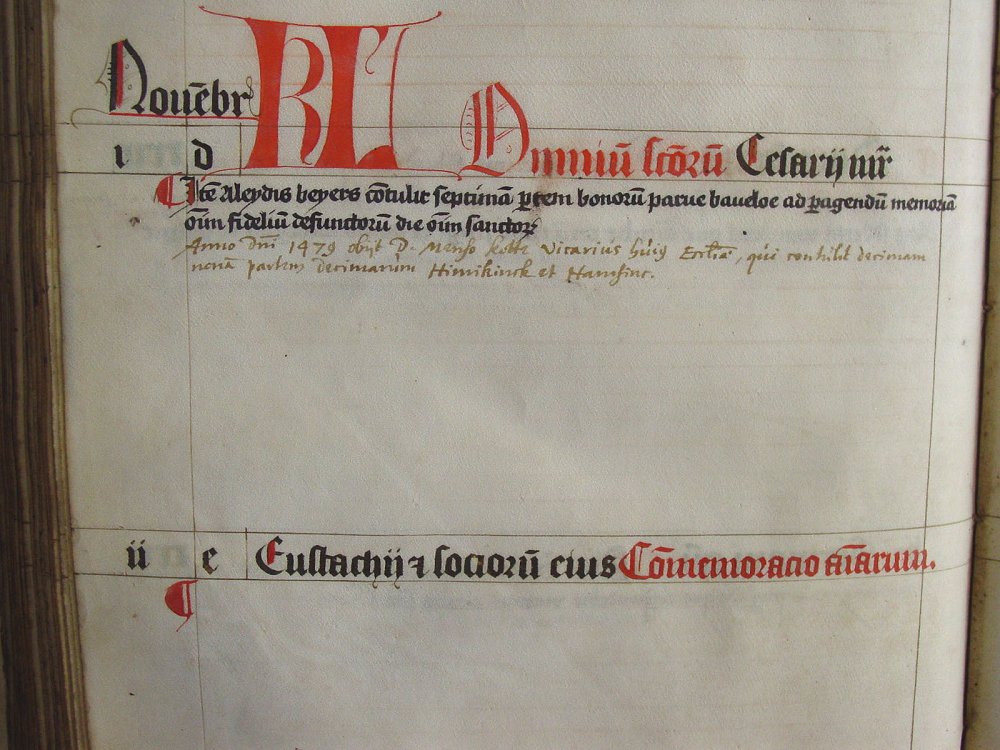 Nouēbr KL
i d Omniū sctōrū Cesarij mr̄
Itē Aleydis beyers cōtulit septimā ꝑtem bonorū parue baueloe ad ꝑagendū memoriā
oīm fideliū defunctorū die oīm sanctoꝝ
Anno Dn̄i 1479 obijt D. Menso kotte Vicarius huiꝰ Eccliae, qui contulit decimam
nonam partem decimarum Hinrikinck et Hamsinc.
ii e Eustachij ⁊ sociorū eius Cōmemoracio aīarum.